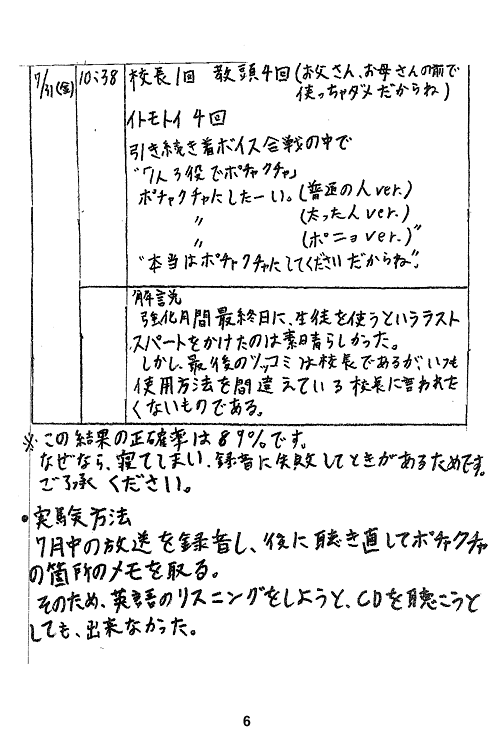 7/31(金) 10:38 校長1回 教頭4回(お父さん、お母さんの前で
使っちゃダメだからね)
イトモトイ 4回
引き続き着ボイス合戦の中で
"1人3役でポチャクチャ」
ポチャクチャにしたーい。(普通の人ver.)
〃 (太った人ver.)
〃 (ポニョver.)"
"本当はポチャクチャにしてくださいだからね"。
解説
強化月間最終日に、生徒を使うというラスト
スパートをかけたのは素晴らしかった。
しかし、最後のツッコミは校長であるが、いつも
使用方法を間違えている校長に言われた
くないものである。
※この結果の正確率は89%です。
なぜなら、寝てしまい、録音に失敗してときがあるためです。
ご了承ください。
・実験方法
7月中の放送を録音し、後に聴き直してポチャクチャ
の箇所のメモを取る。
そのため、英語のリスニングをしようと、CDを聴こうと
しても、出来なかった。
6